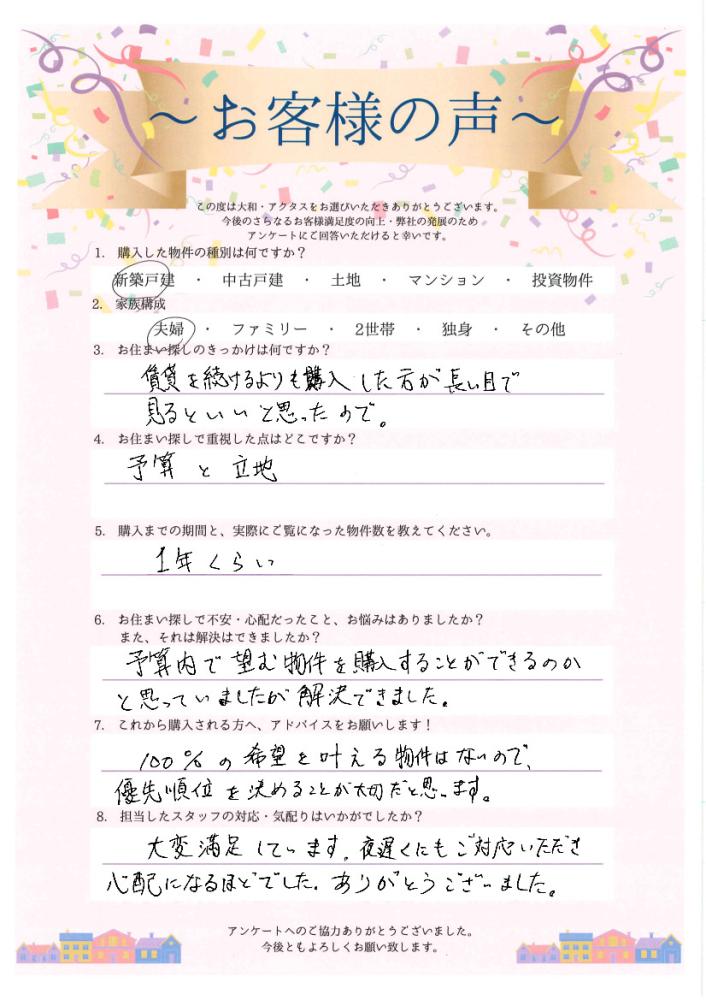 ～お客様の声～
この度は大和・アクタスをお選びいただきありがとうございます。
今後のさらなるお客様満足度の向上・弊社の発展のため
アンケートにご回答いただけると幸いです。
1. 購入した物件の種別は何ですか？
新築戸建 ・ 中古戸建 ・ 土地 ・ マンション ・ 投資物件
2. 家族構成
夫婦 ・ ファミリー ・ 2世帯 ・ 独身 ・ その他
3. お住まい探しのきっかけは何ですか？
賃貸を続けるよりも購入した方が長い目で
見るといいと思ったので。
4. お住まい探しで重視した点はどこですか？
予算と立地
5. 購入までの期間と、実際にご覧になった物件数を教えてください。
1年くらい
6. お住まい探しで不安・心配だったこと、お悩みはありましたか？
また、それは解決はできましたか？
予算内で望む物件を購入することができるのか
と思っていましたが解決できました。
7. これから購入される方へ、アドバイスをお願いします！
100％の希望を叶える物件はないので、
優先順位を決めることが大切だと思います。
8. 担当したスタッフの対応・気配りはいかがでしたか？
大変満足しています。夜遅くにもご対応いただき
心配になるほどでした。ありがとうございました。
アンケートへのご協力ありがとうございました。
今後ともよろしくお願い致します。